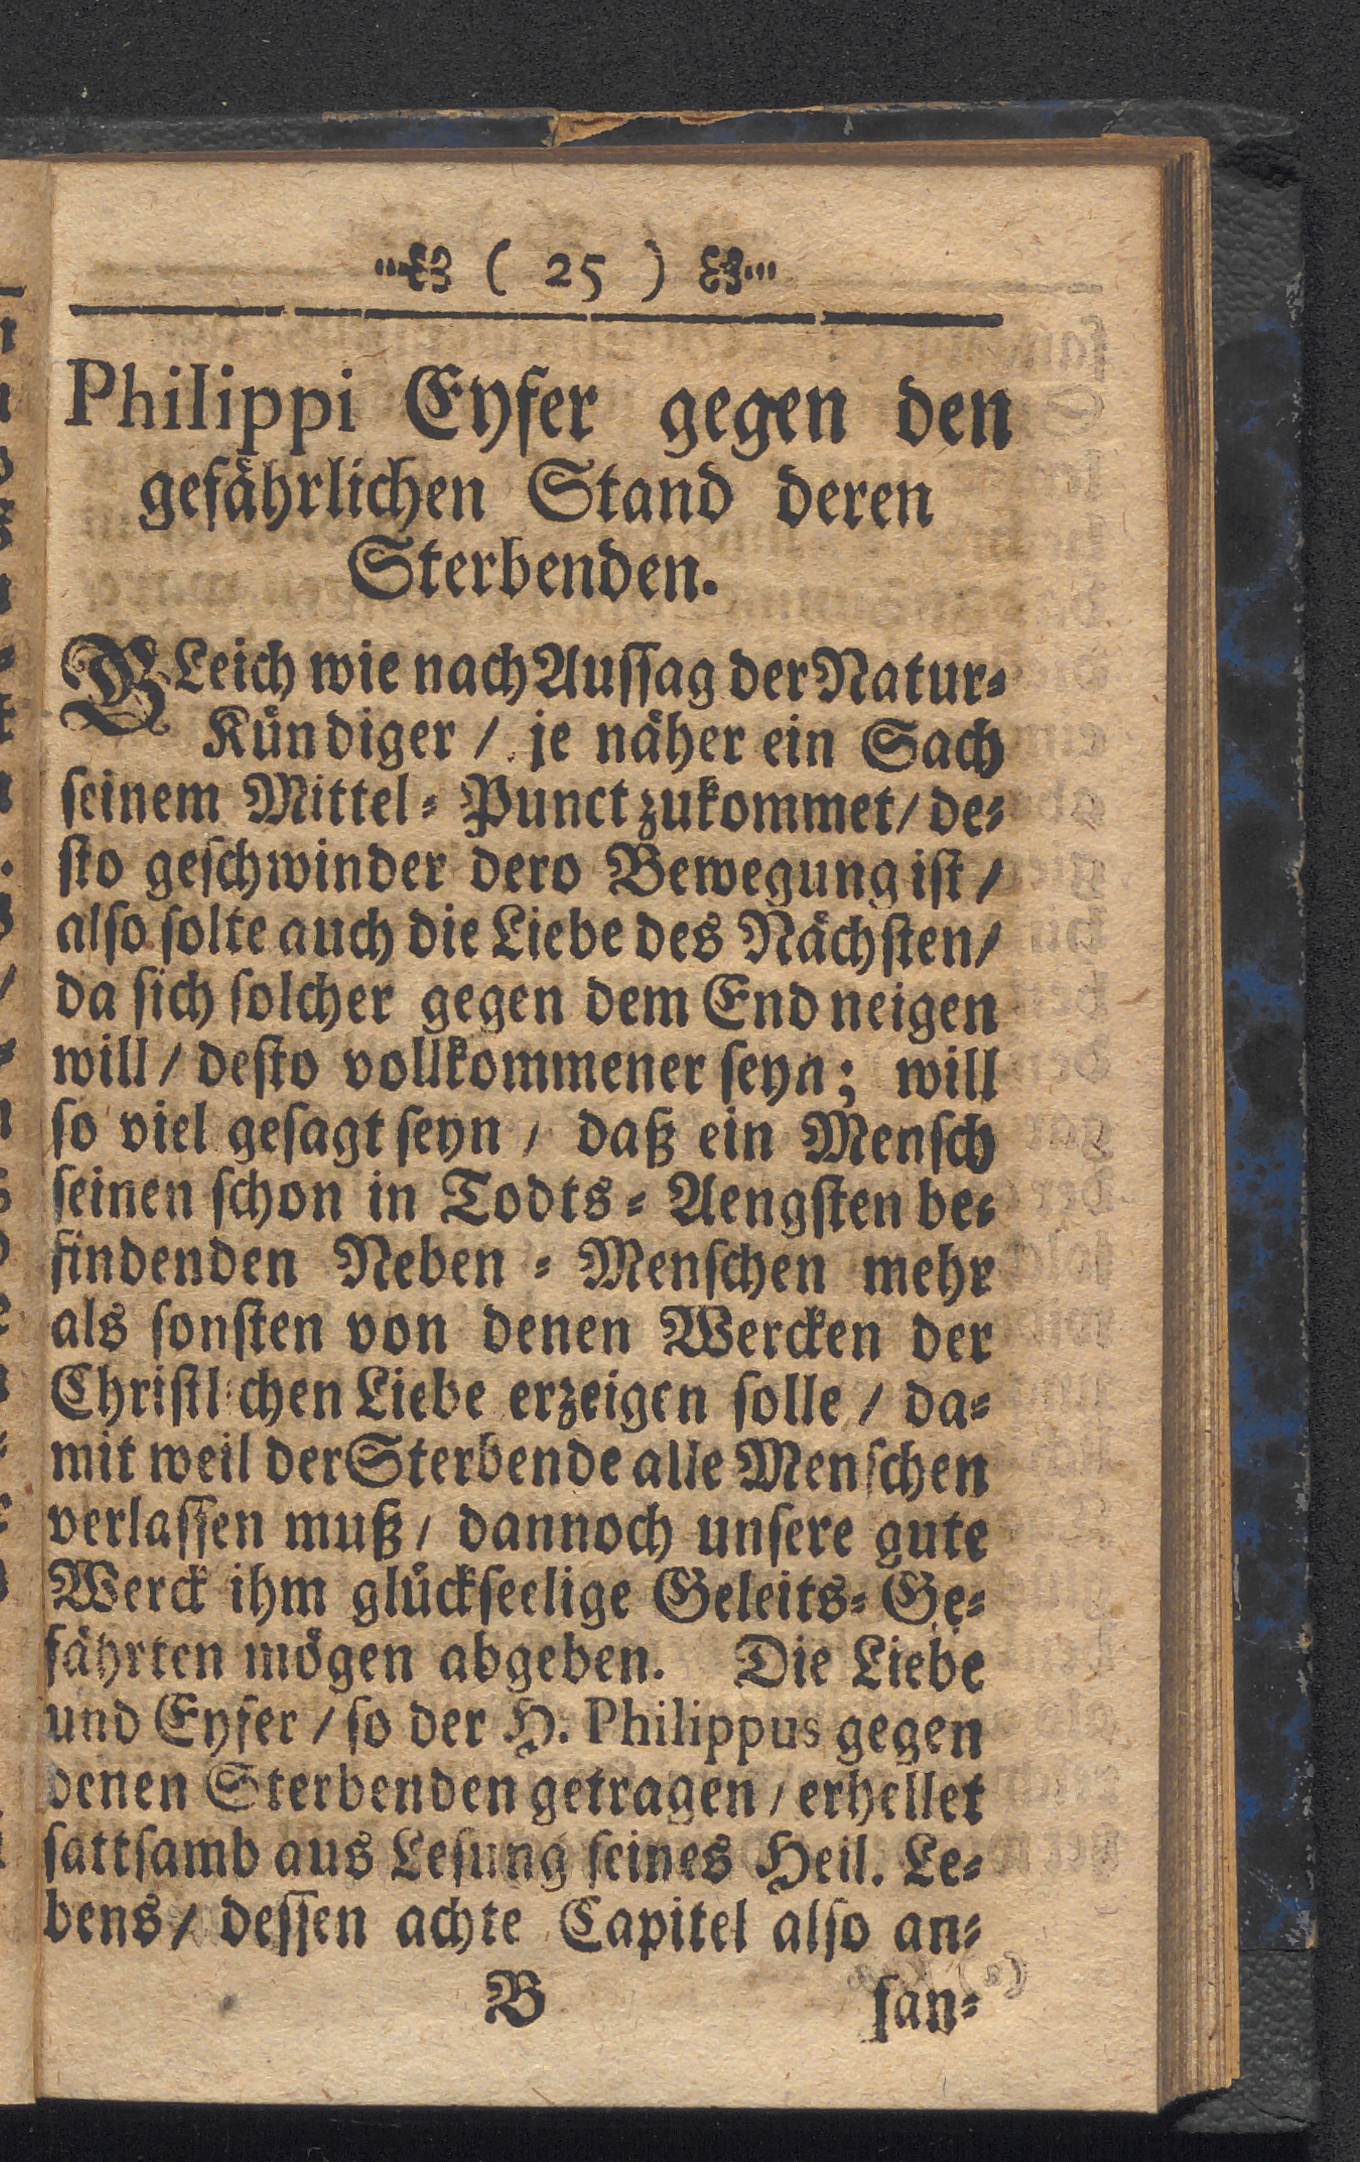 ( 25 )
Philippi Eyfer gegen den
gefährlichen Stand deren
Sterbenden.
GLeich wie nach Aussag der Natur-
Kündiger / je näher ein Sach
seinem Mittel-Punct zukommet / de-
sto geschwinder dero Bewegung ist /
also solte auch die Liebe des Nächsten /
da sich solcher gegen dem End neigen
will / desto vollkommener seyn; will
so viel gesagt seyn / daß ein Mensch
seinen schon in Todts-Aengsten be-
findenden Neben-Menschen mehr
als sonsten von denen Wercken der
Christlichen Liebe erzeigen solle / da-
mit weil der Sterbende alle Menschen
verlassen muß / dannoch unsere gute
Werck ihm glückseelige Geleits-Ge-
fährten mögen abgeben. Die Liebe
und Eyfer / so der H. Philippus gegen
denen Sterbenden getragen / erhellet
sattsamb aus Lesung seines Heil. Le-
bens / dessen achte Capitel also an-
B san-